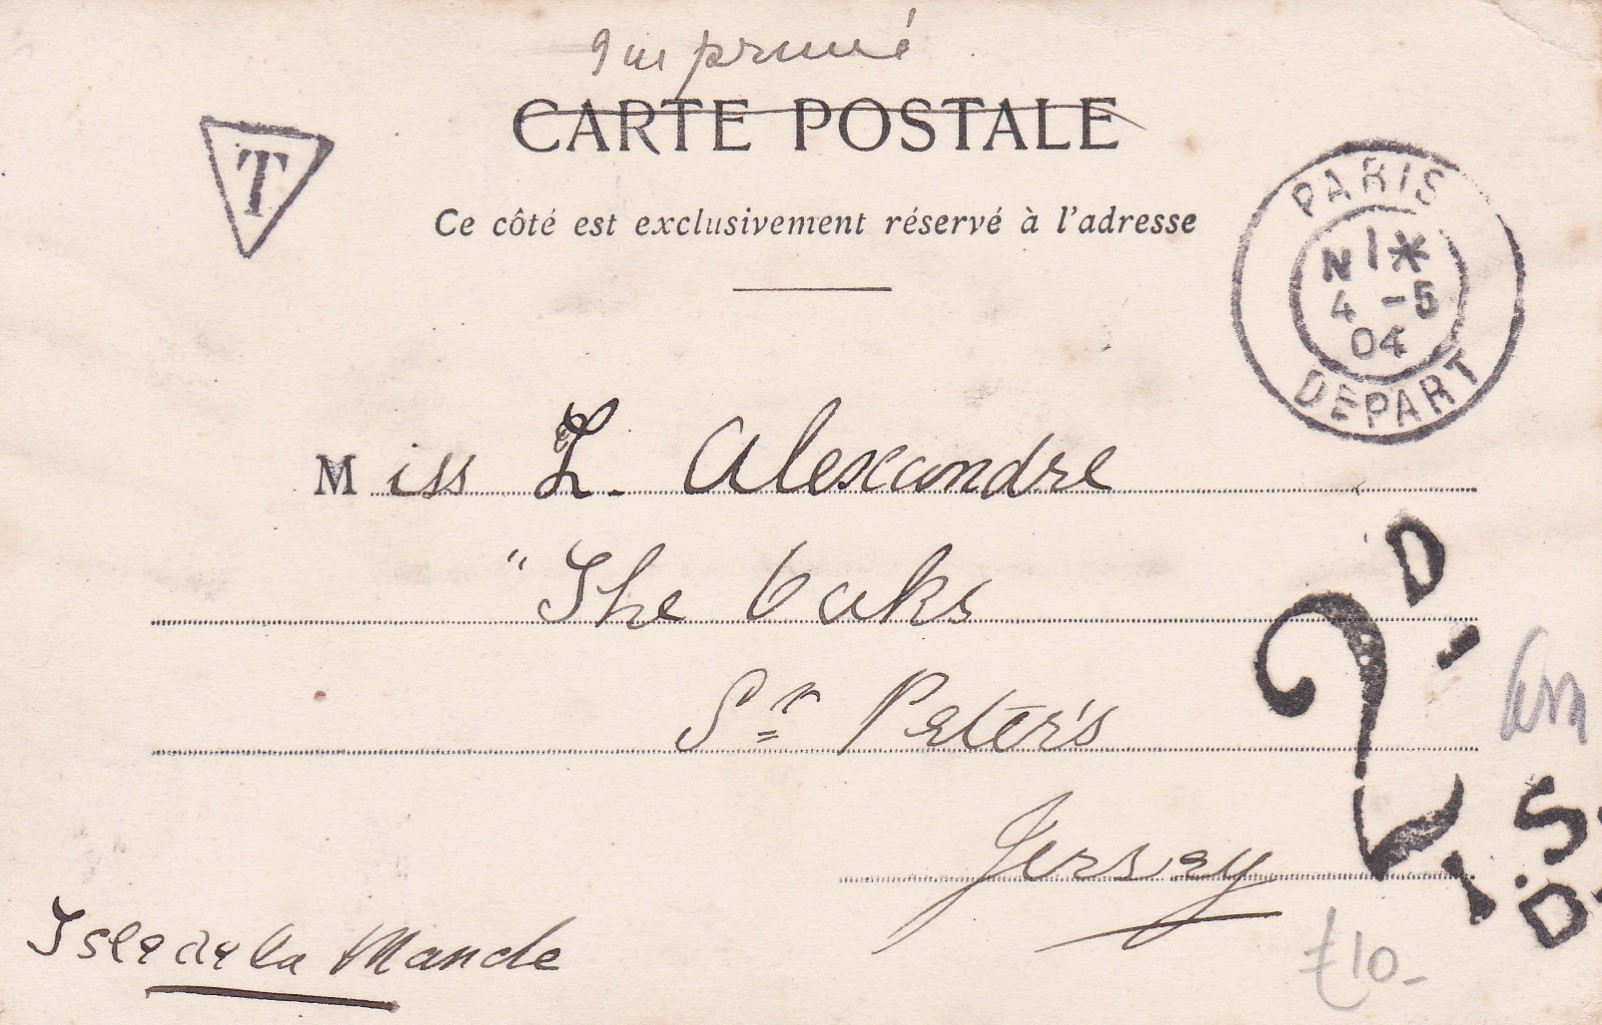 Imprimé
CARTE POSTALE
T
Ce côté est exclusivement réservé à l'adresse
PARIS
N 1*
4 -5
04
DEPART
Miss L. Alexandre
"The Oaks
St Peter's
Jersey
Isle de la Manche
2D.
S.D
£10-